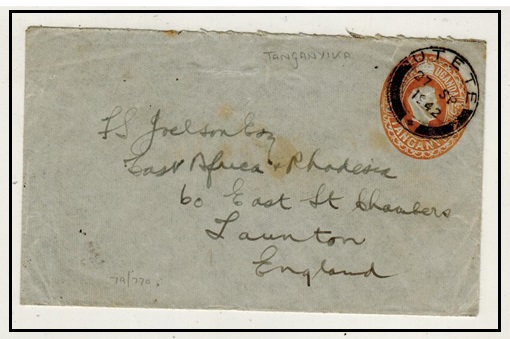 TANGANYIKA
UTETE
27 SP
1942
UGANDA
TANGANY
F S Joelson Esq
East Africa & Rhodesia
60 East St Chambers
Taunton
England
79/770.